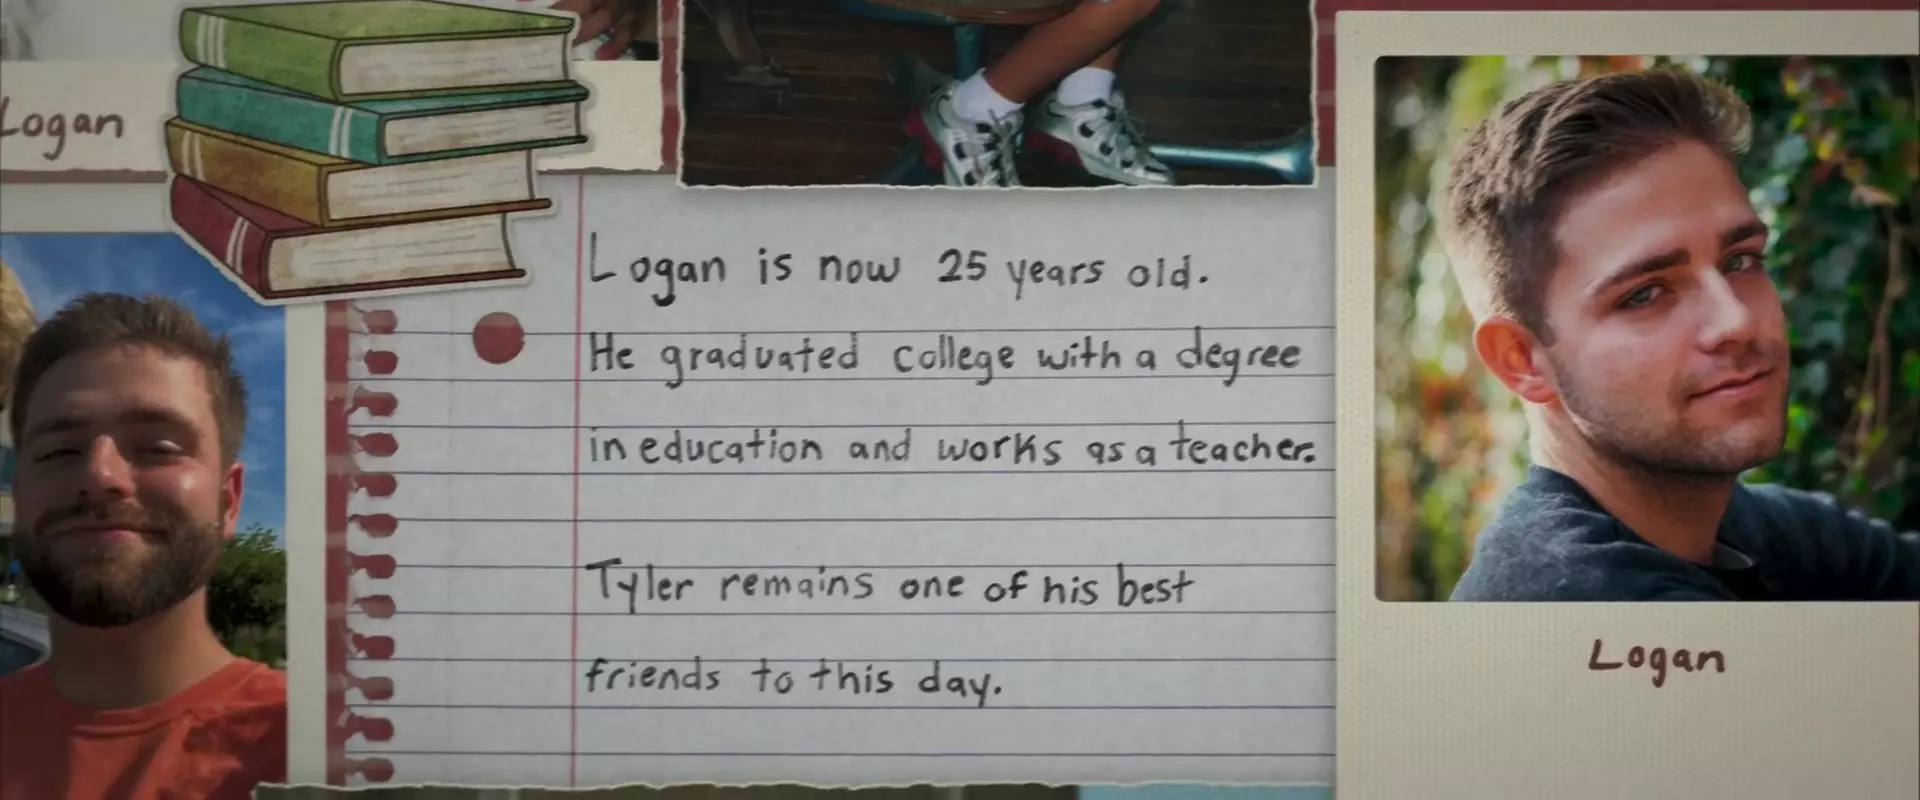 Logan
Logan is now 25 years old.
He graduated college with a degree
in education and works as a teacher.
Tyler remains one of his best
friends to this day.
Logan